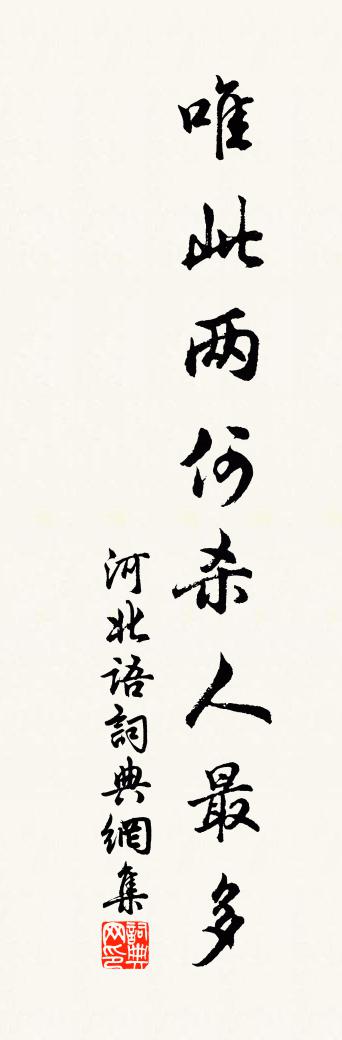 唯此两何杀人最多
河北语詞典網集
詞典网印